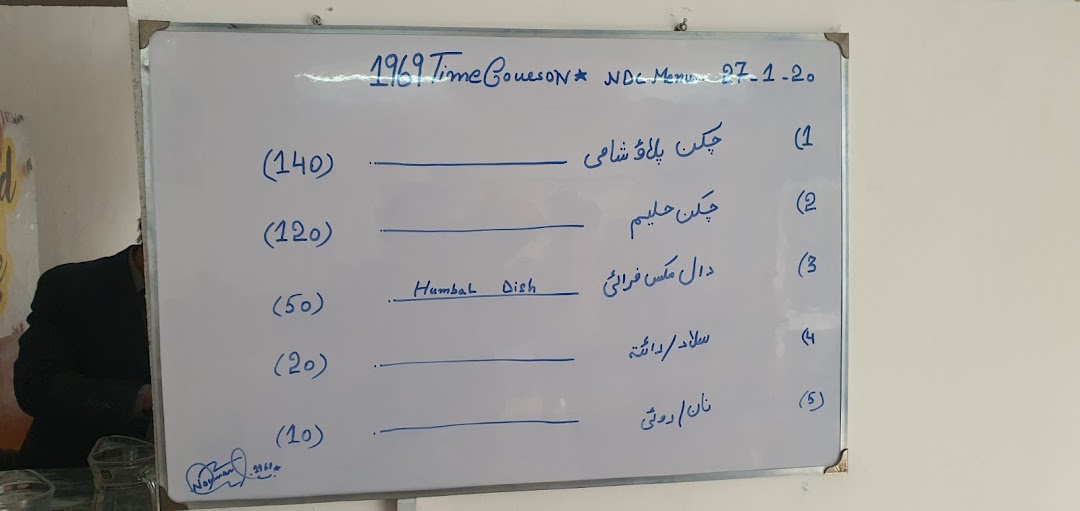 1969 Time Coueson★ NDC Menu 27-1-20
1) چکن پلاؤ شامی ــــــــــ (140)
2) چکن حلیم ــــــــــ (120)
3) دال مکس فرائی Humbal Dish (50)
4) سلاد/رائتہ ــــــــــ (20)
(5) نان/روٹی ــــــــــ (10)
Nouman 1969